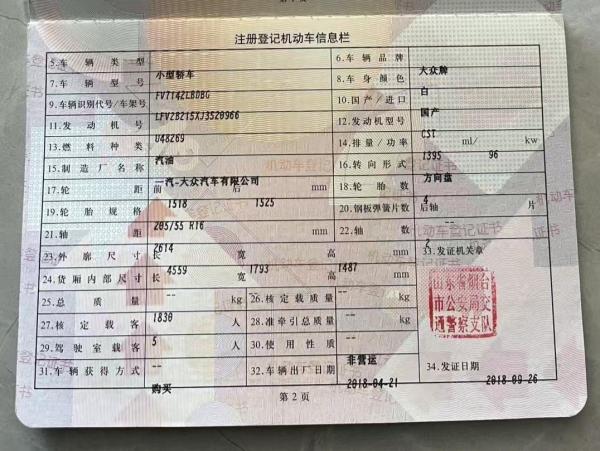 注册登记机动车信息栏
5.车辆类型 小型轿车 6.车辆品牌 大众牌
7.车辆型号 FV7142LBDBG 8.车身颜色 白
9.车辆识别代号/车架号 LFV2B215XJ3520966 10.国产/进口 国产
11.发动机号 U48269 12.发动机型号 CST
13.燃料种类 汽油 14.排量/功率 1395 ml/ 96 kw
15.制造厂名称 一汽-大众汽车有限公司 16.转向形式 方向盘
17.轮距 前 1518 后 1525 mm 18.轮胎数 4
19.轮胎规格 205/55 R16 20.钢板弹簧片数 后轴 -- 片
21.轴距 2614 mm 22.轴数 2
23.外廓尺寸 长 4559 宽 1793 高 1487 mm 33.发证机关章
24.货厢内部尺寸 长 -- 宽 高 mm
山东省烟台
市公安局交
通警察支队
25.总质量 1830 kg 26.核定载质量 -- kg
27.核定载客 5 人 28.准牵引总质量 -- kg
29.驾驶室载客 -- 人 30.使用性质 非营运
31.车辆获得方式 购买 32.车辆出厂日期 2018-04-21 34.发证日期 2018-09-26
第2页